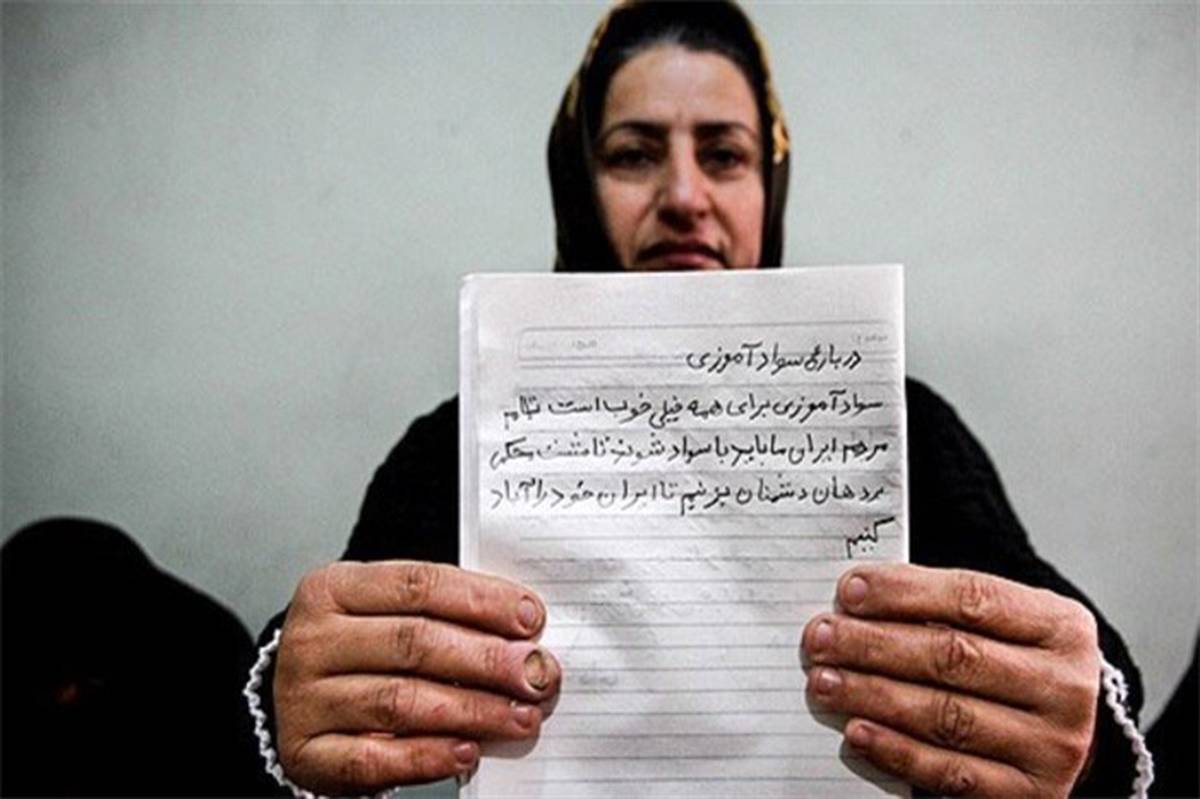 درباره سوادآموزی
سوادآموزی برای همه خیلی خوب است تمام
مردم ایران ما باید با سواد شوند تا مشت محکمی
بر دهان دشمنان بزنیم تا ایران خود را آباد
کنیم